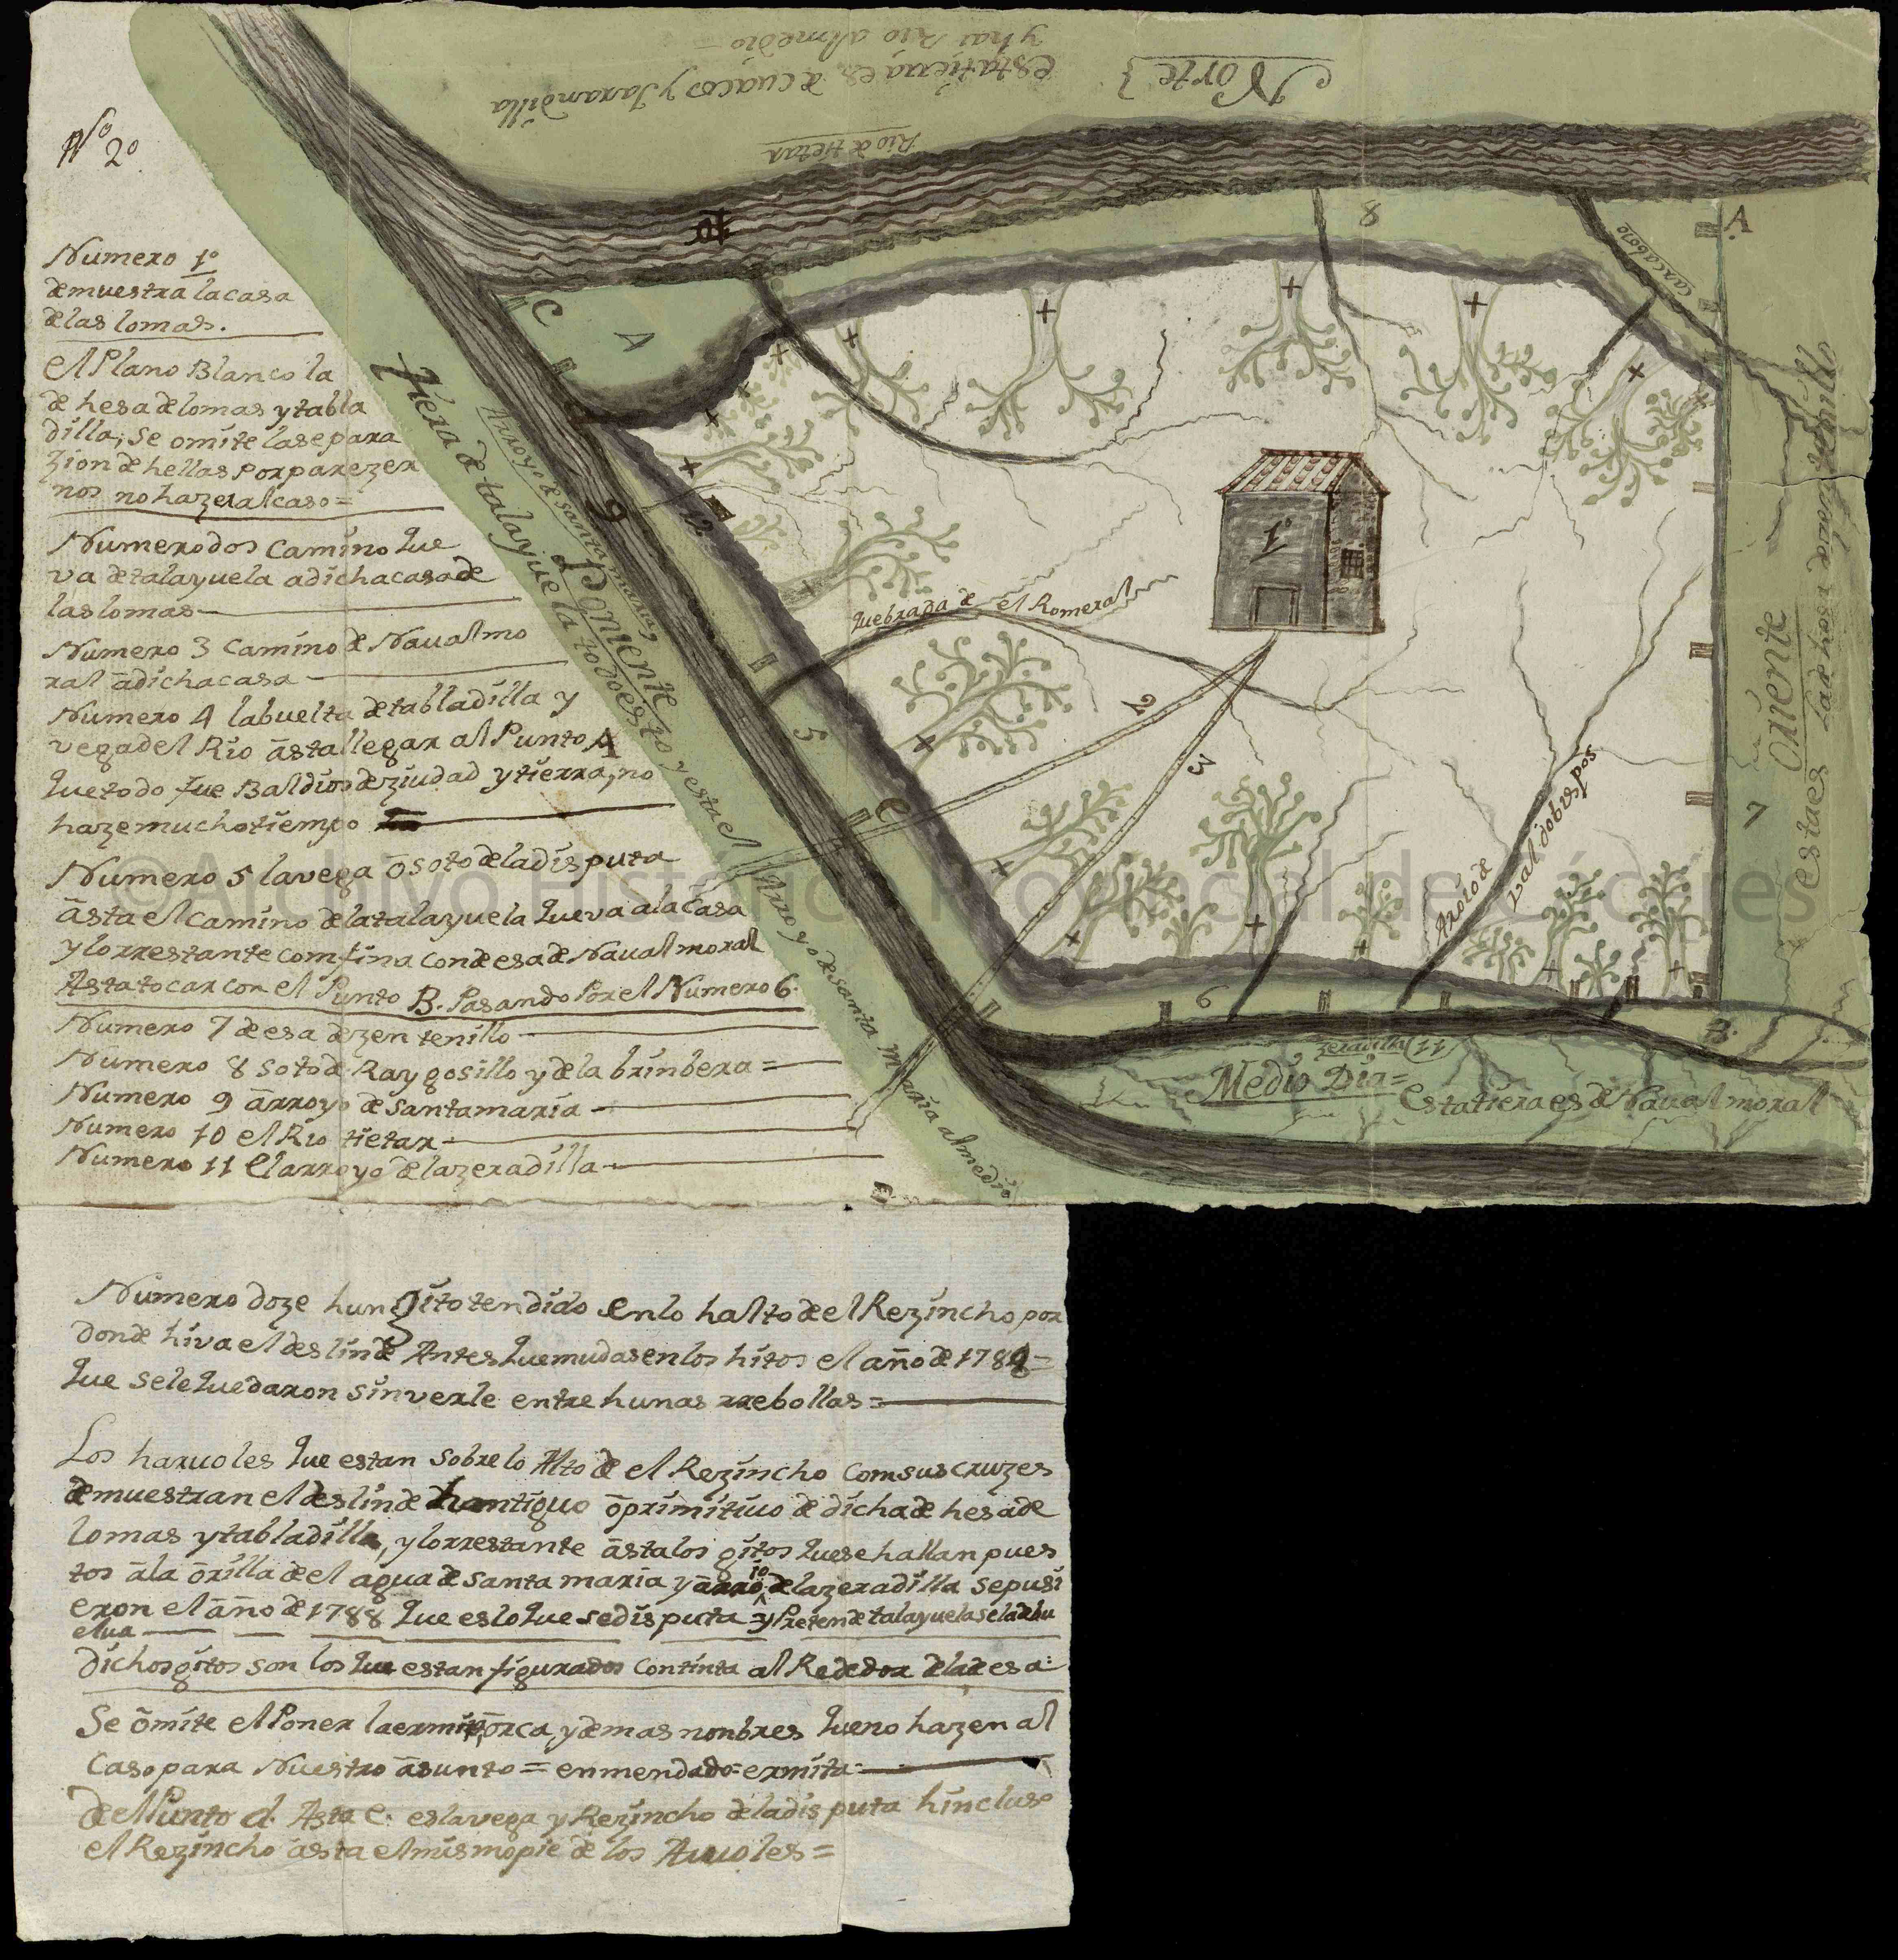 Nº 2º
Numero 1º
demuestra la casa
de las lomas.
el Plano Blanco la
de hesa de lomas y tabla
dilla, Se omite la separa
zion de hellas por parezer
nos no hazer al caso =
Numero dos Camino que
va de talayuela a dicha casa de
las lomas
Numero 3 Camino de Naualmo
ral a dicha casa
Numero 4 la buelta de tabladilla y
vega del Rio asta llegar al Punto A
que todo fue Baldios de ziudad y tierra, no
haze mucho tiempo
Numero 5 la vega o soto de la disputa
asta el camino de la talayuela que va a la Casa
y lo rrestante comfina con desa de Naualmoral
Asta tocar con el Punto B. Pasando Por el Numero 6.
Numero 7 de esa de zentenillo
Numero 8 soto de Raygosillo y de la brinbera =
Numero 9 arroyo de santa maria
Numero 10 el Rio tietar
Numero 11 El arroyo de la zeradilla
Norte
esta tierra es de cuacos y Jarandilla
y hai Rio al medio =
Rio de tietar
10
8
A
cascabozo
C
A
tiera de talayuela todo esto y esta el Arroyo de santa maria al medio
Arroyo de santa maria
Poniente
9
12
d
1º
quebrada de el Romeral
2
3
5
e
Aroio de
val dobispos
7
Oriente
esta es la de hesa de zentenillo
6
B.
zeradilla (11)
Medio Dia =
esta tiera es de Naualmoral
©Archivo Histórico Provincial de Cáceres
Numero doze hun gito tendido en lo halto de el Rezincho por
donde hiva el deslinde Antes que mudasen los hitos el año de 1788 =
que se le quedaron sin verle entre hunas rrebollas =
Los haruoles que estan sobre lo Alto de el Rezincho com sus cruzes
demuestran el deslinde hantiguo o primitiuo de dicha de hesa de
lomas y tabladilla, y lo rrestante asta los gitos que se hallan pues
tos a la orilla de el agua de santa maria y arroio de la zeradilla se pusi
eron el año de 1788 que es lo que se disputa y Pretende talayuela se la debu
elua
dichos gitos son los que estan figurados con tinta al Rededor de la desa:
Se omite el Poner la ermita, orca, y demas nonbres que no hazen al
Caso para Nuestro asunto = enmendado = ermita =
del Punto d. Asta e. es la vega y Rezincho de la disputa hincluso
el Rezincho asta el mismo pie de los Aruoles =